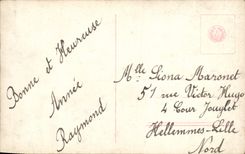 Bonne et Heureuse
Année
Raymond
Mlle Siona Maronet
51 rue Victor Hugo
4 Cour Jouglet
Hellemmes-Lille
Nord